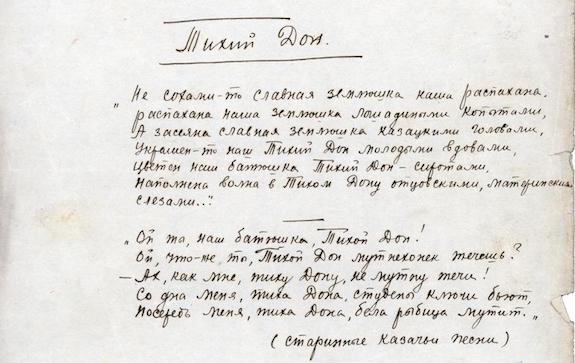 Тихий Дон.
"Не сохами-то славная землюшка наша распахана.
распахана наша землюшка лошадиными копытами,
А засеяна славная землюшка казацкими головами,
Украшен-то наш Тихий Дон молодыми вдовами,
Цветен наш батюшка Тихий Дон - сиротами,
Наполнена волна в Тихом Дону отцовскими, материнскими
слезами.."
„Ой ты, наш батюшка, Тихой Дон!
Ой, что-же, ты, Тихой Дон мутнехонек течешь?
— Ах, как мне, тиху Дону, не мутну течи!
Со дна меня, тиха Дона, студены ключи бьют,
Посередь меня, тиха Дона, бела рыбица мутит.„
(старинные казачьи песни)